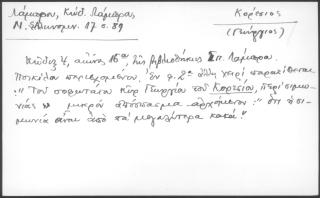 Λάμπρου, Κώδ. Λάμπρου,
Ν. Ἑλληνομν. 17 σ. 39
Κορέσιος
(Γεώργιος)
Κῶδιξ 4, αἰῶνος 16ου τῆς βιβλιοθήκης Σπ. Λάμπρου.
Ποικίλου περιεχομένου. Ἐν φ. 2α ἄλλη χεὶρ παρατίθεται
: "Τοῦ σοφωτάτου κὺρ Γεωργίου τοῦ Κορεσίου, περὶ σιμω-
νίας" μικρὸν ἀπόσπασμα ἀρχόμενον: "ὅτι ἡ σι-
μωνία εἶναι ἀπὸ τὰ μεγαλύτερα κακά."